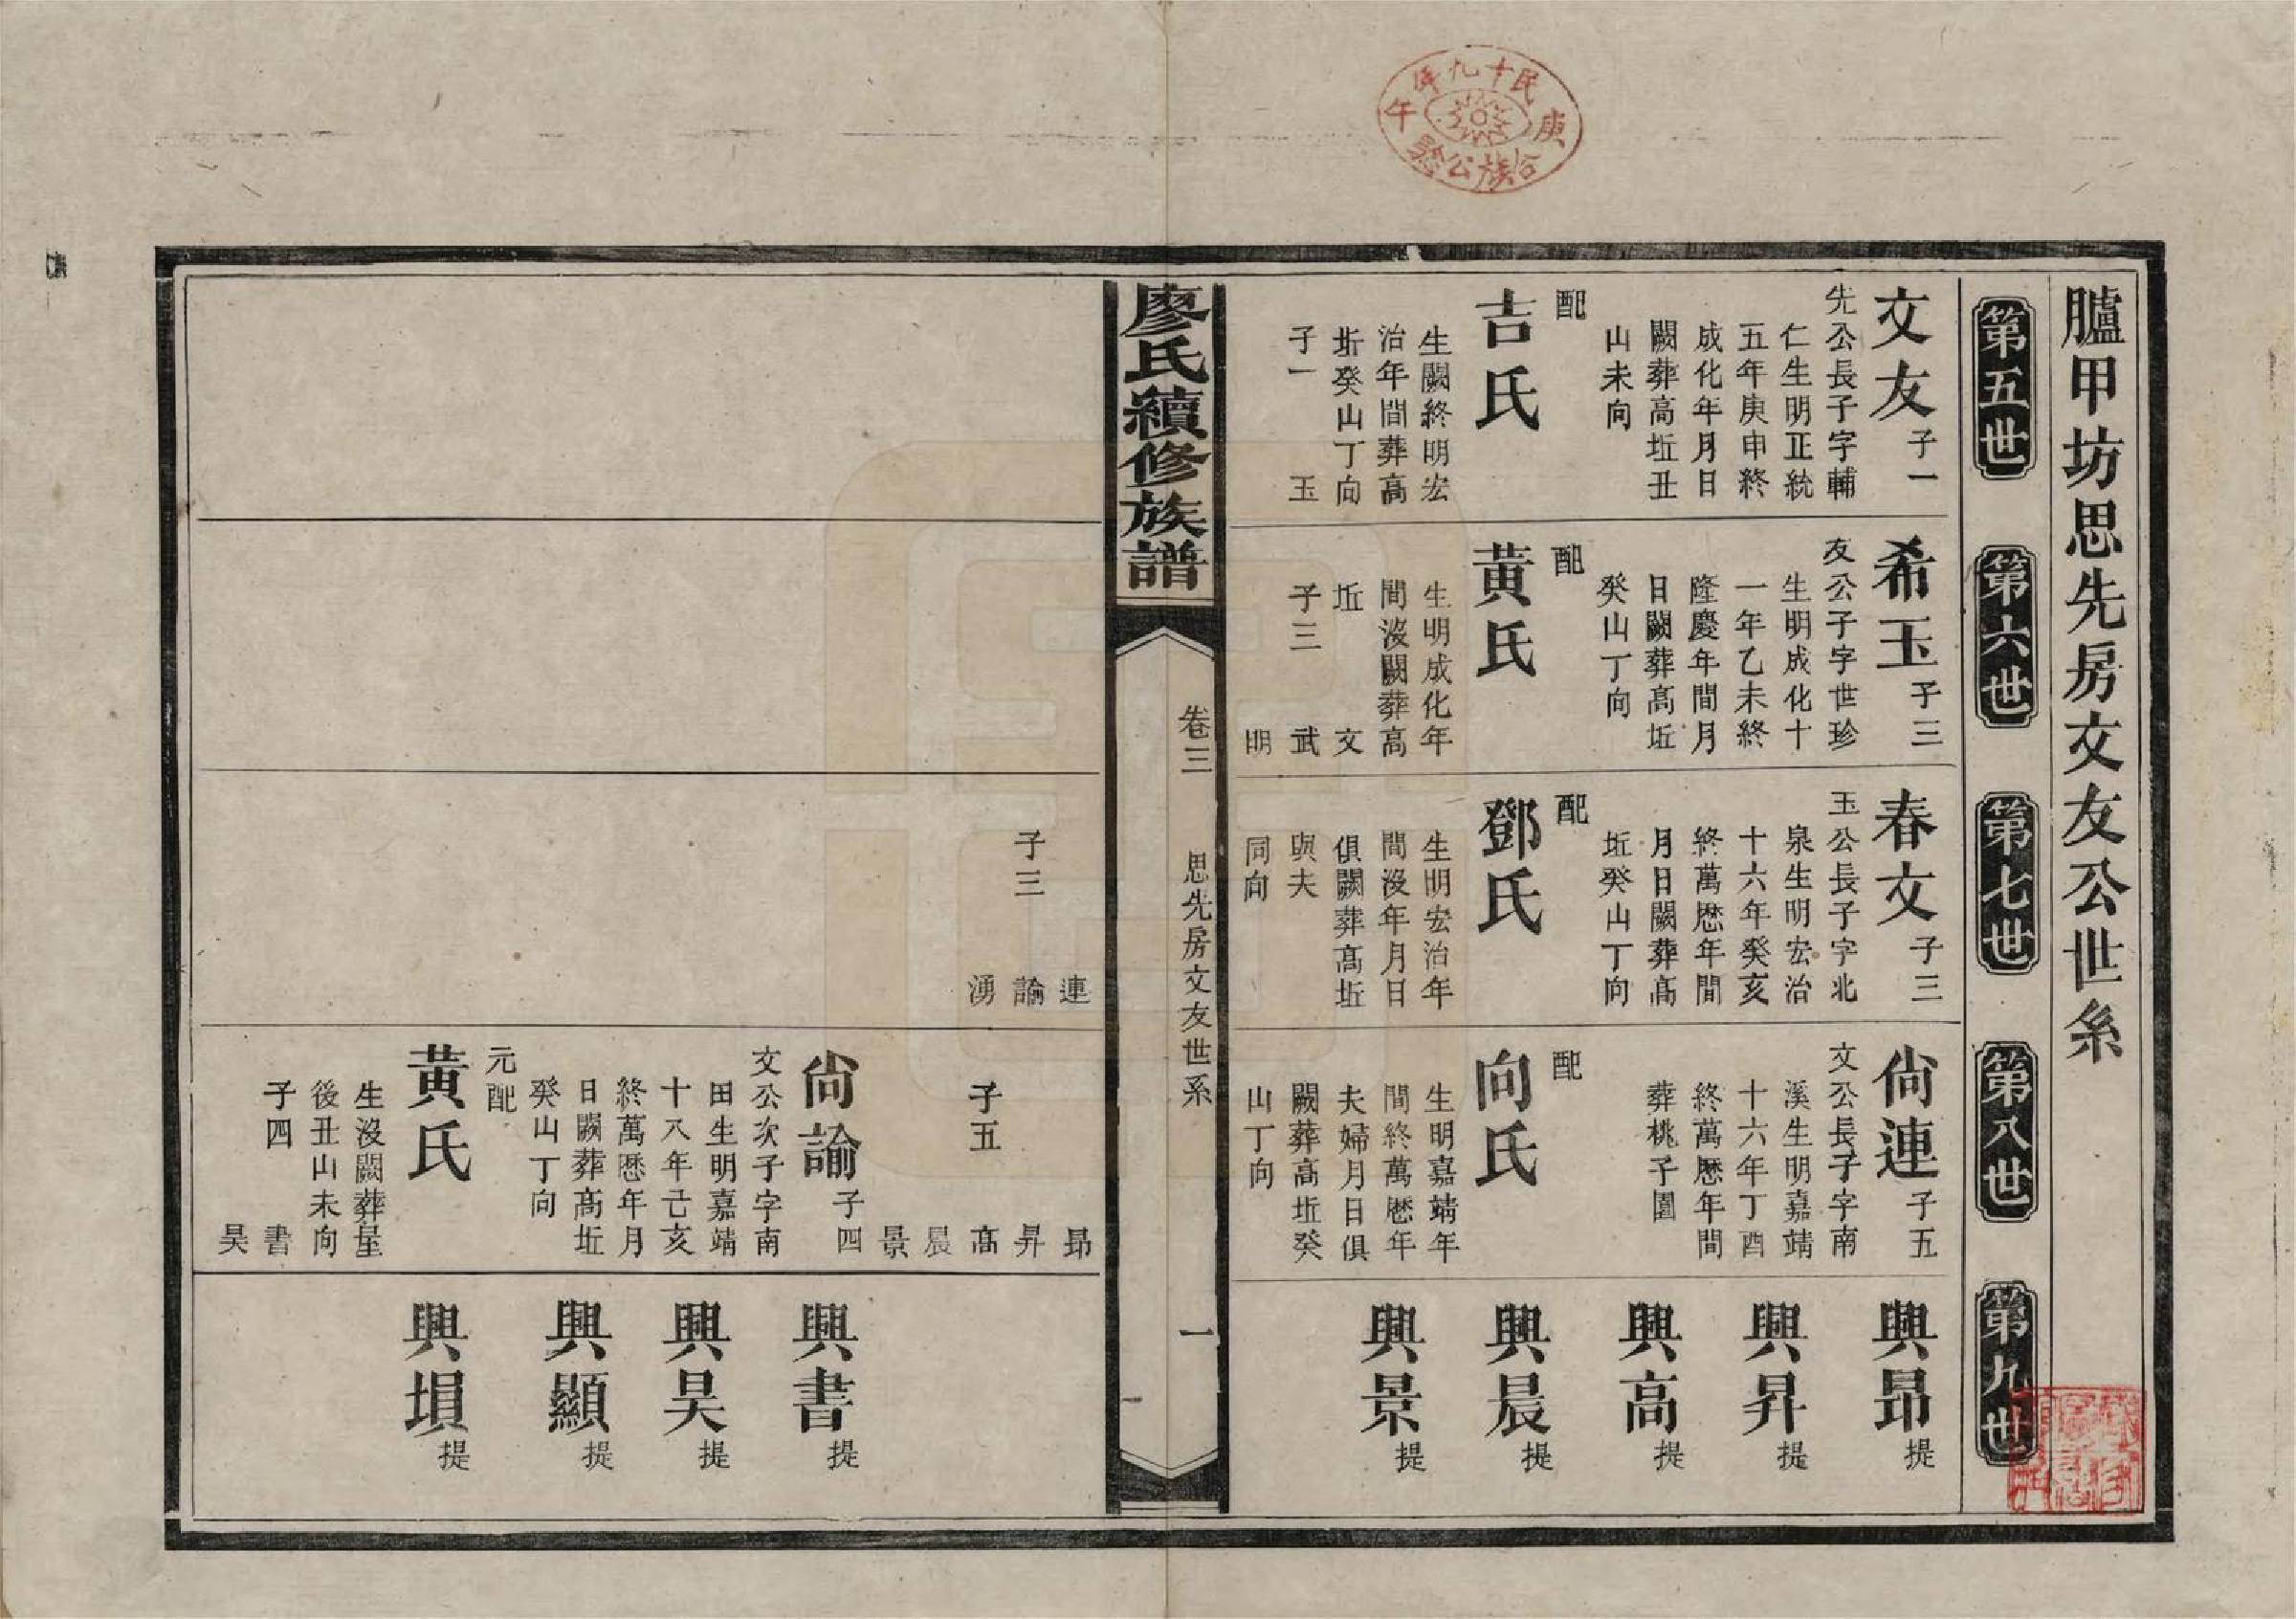 民十九年
庚午
合族公懸
臚甲坊思先房文友公世系
第五世
第六世
第七世
第八世
第九世
文友子一
先公長子字輔
仁生明正統
五年庚申終
成化年月日
闕葬高坵丑
山未向
配
吉氏
生闕終明宏
治年間葬高
坵癸山丁向
子一 玉
希玉子三
友公子字世珍
生明成化十
一年乙未終
隆慶年間月
日闕葬高坵
癸山丁向
配
黃氏
生明成化年
間沒闕葬高
坵 文
子三 武
明
春文子三
玉公長子字北
泉生明宏治
十六年癸亥
終萬歷年間
月日闕葬高
坵癸山丁向
配
鄧氏
生明宏治年
間沒年月日
俱闕葬高坵
與夫
同向
尙連子五
文公長子字南
溪生明嘉靖
十六年丁酉
終萬歷年間
葬桃子園
配
向氏
生明嘉靖年
間終萬歷年
夫婦月日俱
闕葬高坵癸
山丁向
興昂提
興昇提
興高提
興晨提
興景提
廖氏續修族譜
卷三
思先房文友世系
一
連
子三 諭
湧
昂
昇
子五 高
晨
景
尙諭子四
文公次子字南
田生明嘉靖
十八年己亥
終萬歷年月
日闕葬高坵
癸山丁向
元配
黃氏
生沒闕葬屋
後丑山未向
子四 書
昊
興書提
興昊提
興顯提
興塤提